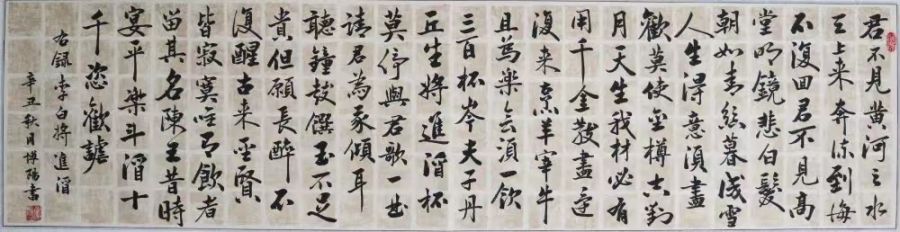 君不見黄河之水
天上来奔流到海
不復回君不見高
堂明鏡悲白髮
朝如青絲暮成雪
人生得意須盡
歡莫使金樽空對
月天生我材必有
用千金散盡還
復来烹羊宰牛
且為樂會須一飲
三百杯岑夫子丹
丘生將進酒杯
莫停與君歌一曲
請君為我傾耳
聽鐘鼓饌玉不足
貴但願長醉不
復醒古来聖賢
皆寂寞唯有飲者
留其名陳王昔時
宴平樂斗酒十
千恣歡謔
右録李白將進酒
辛丑秋月博陽書